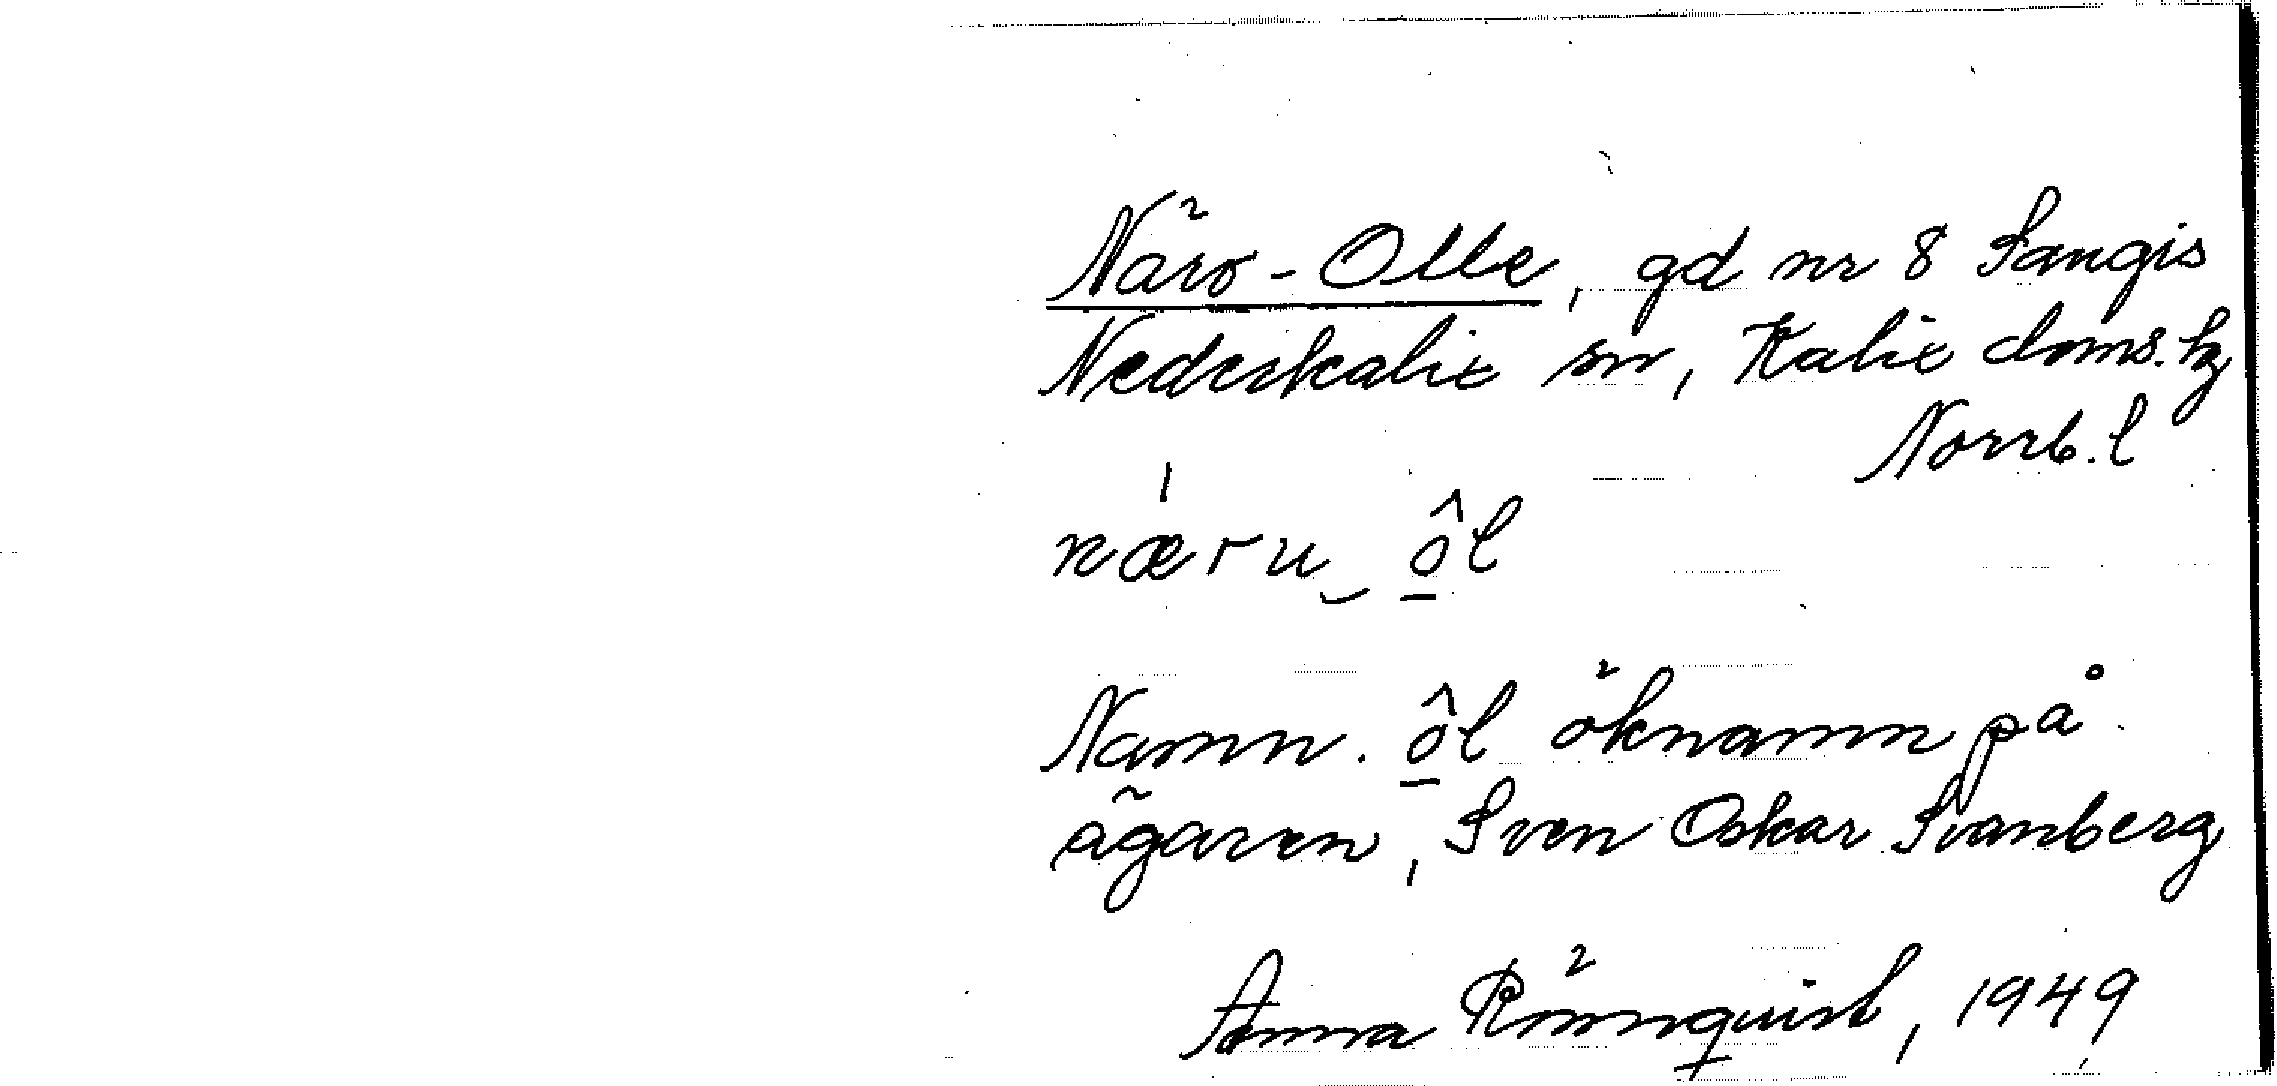 Närö-Olle, gd nr 8 Sangis
Nederkalix sn, Kalix doms. hg
Norrb. l
næru ôl
Namn. ôl öknamn på
ägaren, Sven Oskar Svanberg
Anna Rönnquist, 1949